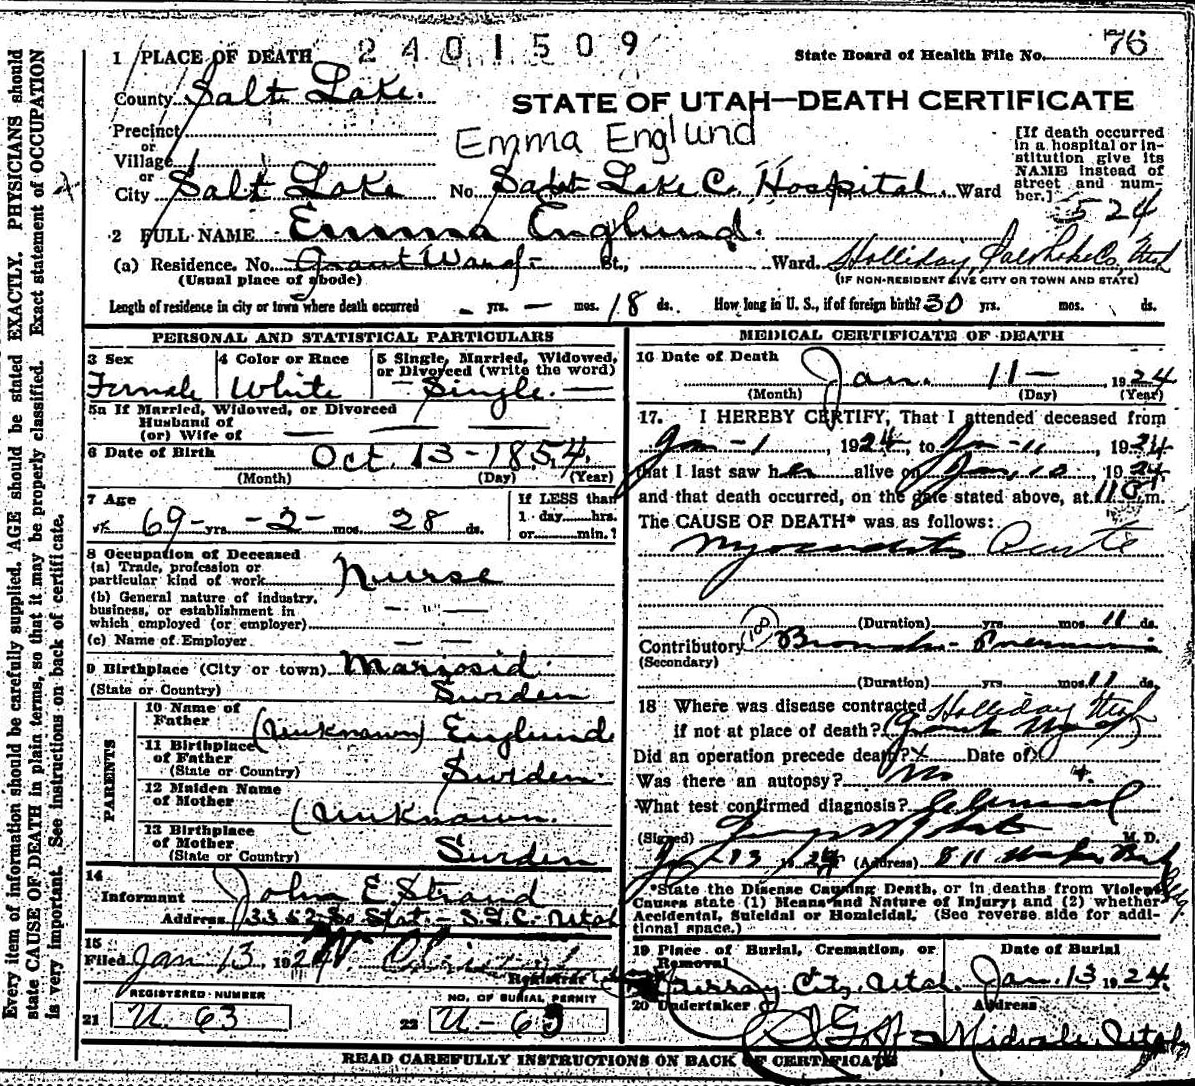 Every item of information should be carefully supplied. AGE should be stated EXACTLY. PHYSICIANS should
state CAUSE OF DEATH in plain terms, so that it may be properly classified. Exact statement of OCCUPATION
is very important. See instructions on back of certificate.
2401509
State Board of Health File No. 76
1 PLACE OF DEATH
County Salt Lake.
STATE OF UTAH—DEATH CERTIFICATE
Emma Englund
Precinct
or
Village
or
City Salt Lake No. Salt Lake Co. Hospital. Ward
[If death occurred in a hospital or institution give its NAME instead of street and number.]
524
2 FULL NAME Emma Englund.
(a) Residence. No. Grant Ward St., Ward. Holliday, Salt Lake Co, Utah
(Usual place of abode) (IF NON-RESIDENT GIVE CITY OR TOWN AND STATE)
Length of residence in city or town where death occurred - yrs. - mos. 18 ds. How long in U. S., if of foreign birth? 30 yrs. mos. ds.
PERSONAL AND STATISTICAL PARTICULARS
3 Sex 4 Color or Race 5 Single, Married, Widowed, or Divorced (write the word)
Female White - Single. -
5a If Married, Widowed, or Divorced
Husband of
(or) Wife of - - -
6 Date of Birth Oct. 13 - 1854.
(Month) (Day) (Year)
7 Age If LESS than
1 day......hrs.
69- yrs. -2- mos. 28 ds. or......min.?
8 Occupation of Deceased
(a) Trade, profession or
particular kind of work Nurse
(b) General nature of industry,
business, or establishment in
which employed (or employer) - " -
(c) Name of Employer - -
9 Birthplace (City or town)
(State or Country) Sweden
PARENTS
10 Name of
Father (Unknown) Englund
11 Birthplace
of Father
(State or Country) Sweden.
12 Maiden Name
of Mother (Unknown.
13 Birthplace
of Mother
(State or Country) Sweden
14
Informant John E Strand
Address 3352 So State - S.L.C. Utah
15
Filed Jan 13, 1924
Registrar
REGISTERED NUMBER NO. OF BURIAL PERMIT
21 U. 63 22 U-63
MEDICAL CERTIFICATE OF DEATH
16 Date of Death Jan. 11 - 1924
(Month) (Day) (Year)
17. I HEREBY CERTIFY, That I attended deceased from
Jan - 1, 1924, to Jan - 11, 1924
that I last saw her alive on Jan. 10, 1924
and that death occurred, on the date stated above, at m.
The CAUSE OF DEATH* was as follows:
Myocarditis Acute
(Duration) yrs. mos. 11 ds.
Contributory (100) Broncho-Pneumonia
(Secondary)
(Duration) yrs. mos. 11 ds.
18 Where was disease contracted Holliday Utah
if not at place of death? (Grant Ward)
Did an operation precede death? x Date of x
Was there an autopsy? No
What test confirmed diagnosis? Clinical
(Signed) M. D.
1924 (Address) 811
*State the Disease Causing Death, or in deaths from Violent
Causes state (1) Means and Nature of Injury; and (2) whether
Accidental, Suicidal or Homicidal. (See reverse side for addi-
tional space.)
19 Place of Burial, Cremation, or
Removal Date of Burial
Murray City, Utah. Jan. 13 1924
20 Undertaker Address
Midvale, Utah
READ CAREFULLY INSTRUCTIONS ON BACK OF CERTIFICATE